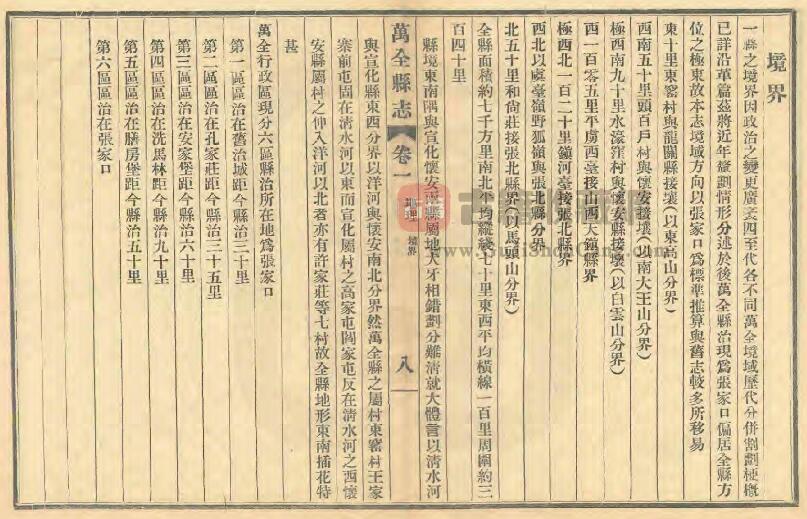 境界
一縣之境界因政治之變更廣袤四至代各不同萬全境域歷代分併割劃梗概
已詳沿革篇茲將近年變劃情形分述於後萬全縣治現爲張家口偏居全縣方
位之極東故本志境域方向以張家口爲標準推算與舊志較多所移易
東十里東窰村與龍關縣接壤(以東高山分界)
西南五十里頭百戶村與懷安接壤(以南大王山分界)
極西南九十里水濠窪村與懷安縣接壤(以白雲山分界)
西一百零五里平虜西臺接山西天鎮縣界
極西北一百二十里鎮河臺接張北縣界
西北以虞臺嶺野狐嶺與張北縣分界
北五十里和尙莊接張北縣界(以馬頭山分界)
全縣面積約七千方里南北平均縱綫七十里東西平均橫線一百里周圍約三
百四十里
萬全縣志 卷一 地理 境界 八
縣境東南隅與宣化懷安兩縣屬地犬牙相錯劃分難淸就大體言以淸水河
與宣化縣東西分界以洋河與懷安南北分界然萬全縣之屬村東窰村王家
寨前屯固在淸水河以東而宣化屬村之高家屯閻家屯反在淸水河之西懷
安縣屬村之伸入洋河以北者亦有許家莊等七村故全縣地形東南插花特
甚
萬全行政區現分六區縣治所在地爲張家口
第一區區治在舊治城距今縣治三十里
第二區區治在孔家莊距今縣治三十五里
第三區區治在安家堡距今縣治六十里
第四區區治在洗馬林距今縣治九十里
第五區區治在膳房堡距今縣治五十里
第六區區治在張家口